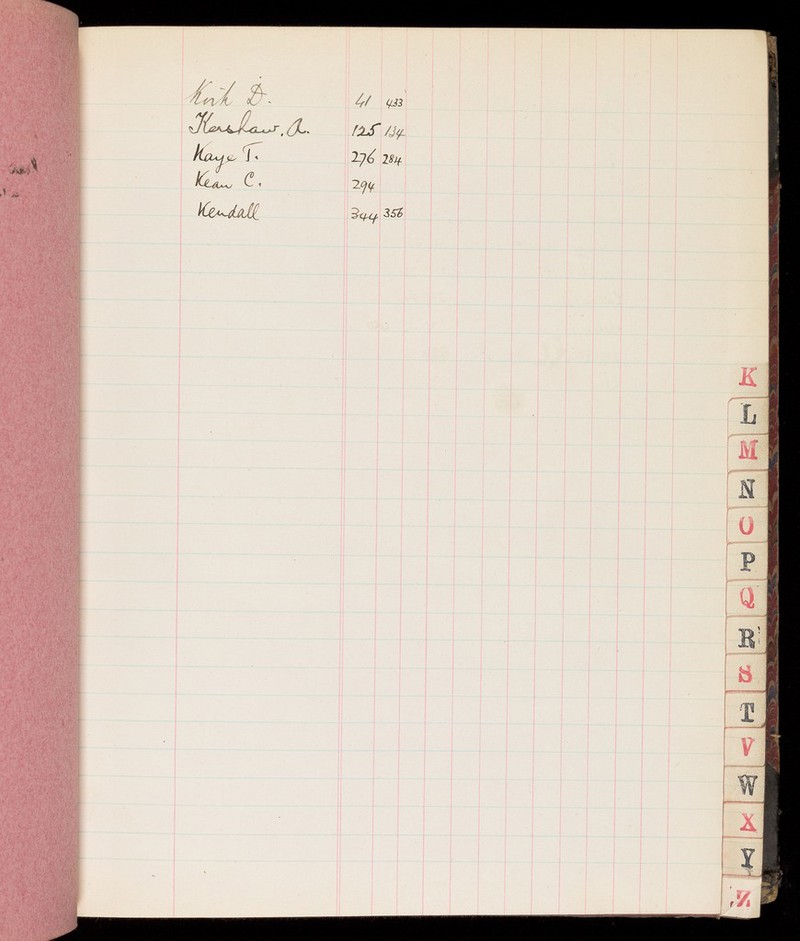 Kirk D. 41 433
Kershaw. A. 125 134
Kaye T. 276 284
Kean C. 294
Kendall 344 356
K
L
M
N
O
P
Q
R
S
T
V
W
X
Y
Z